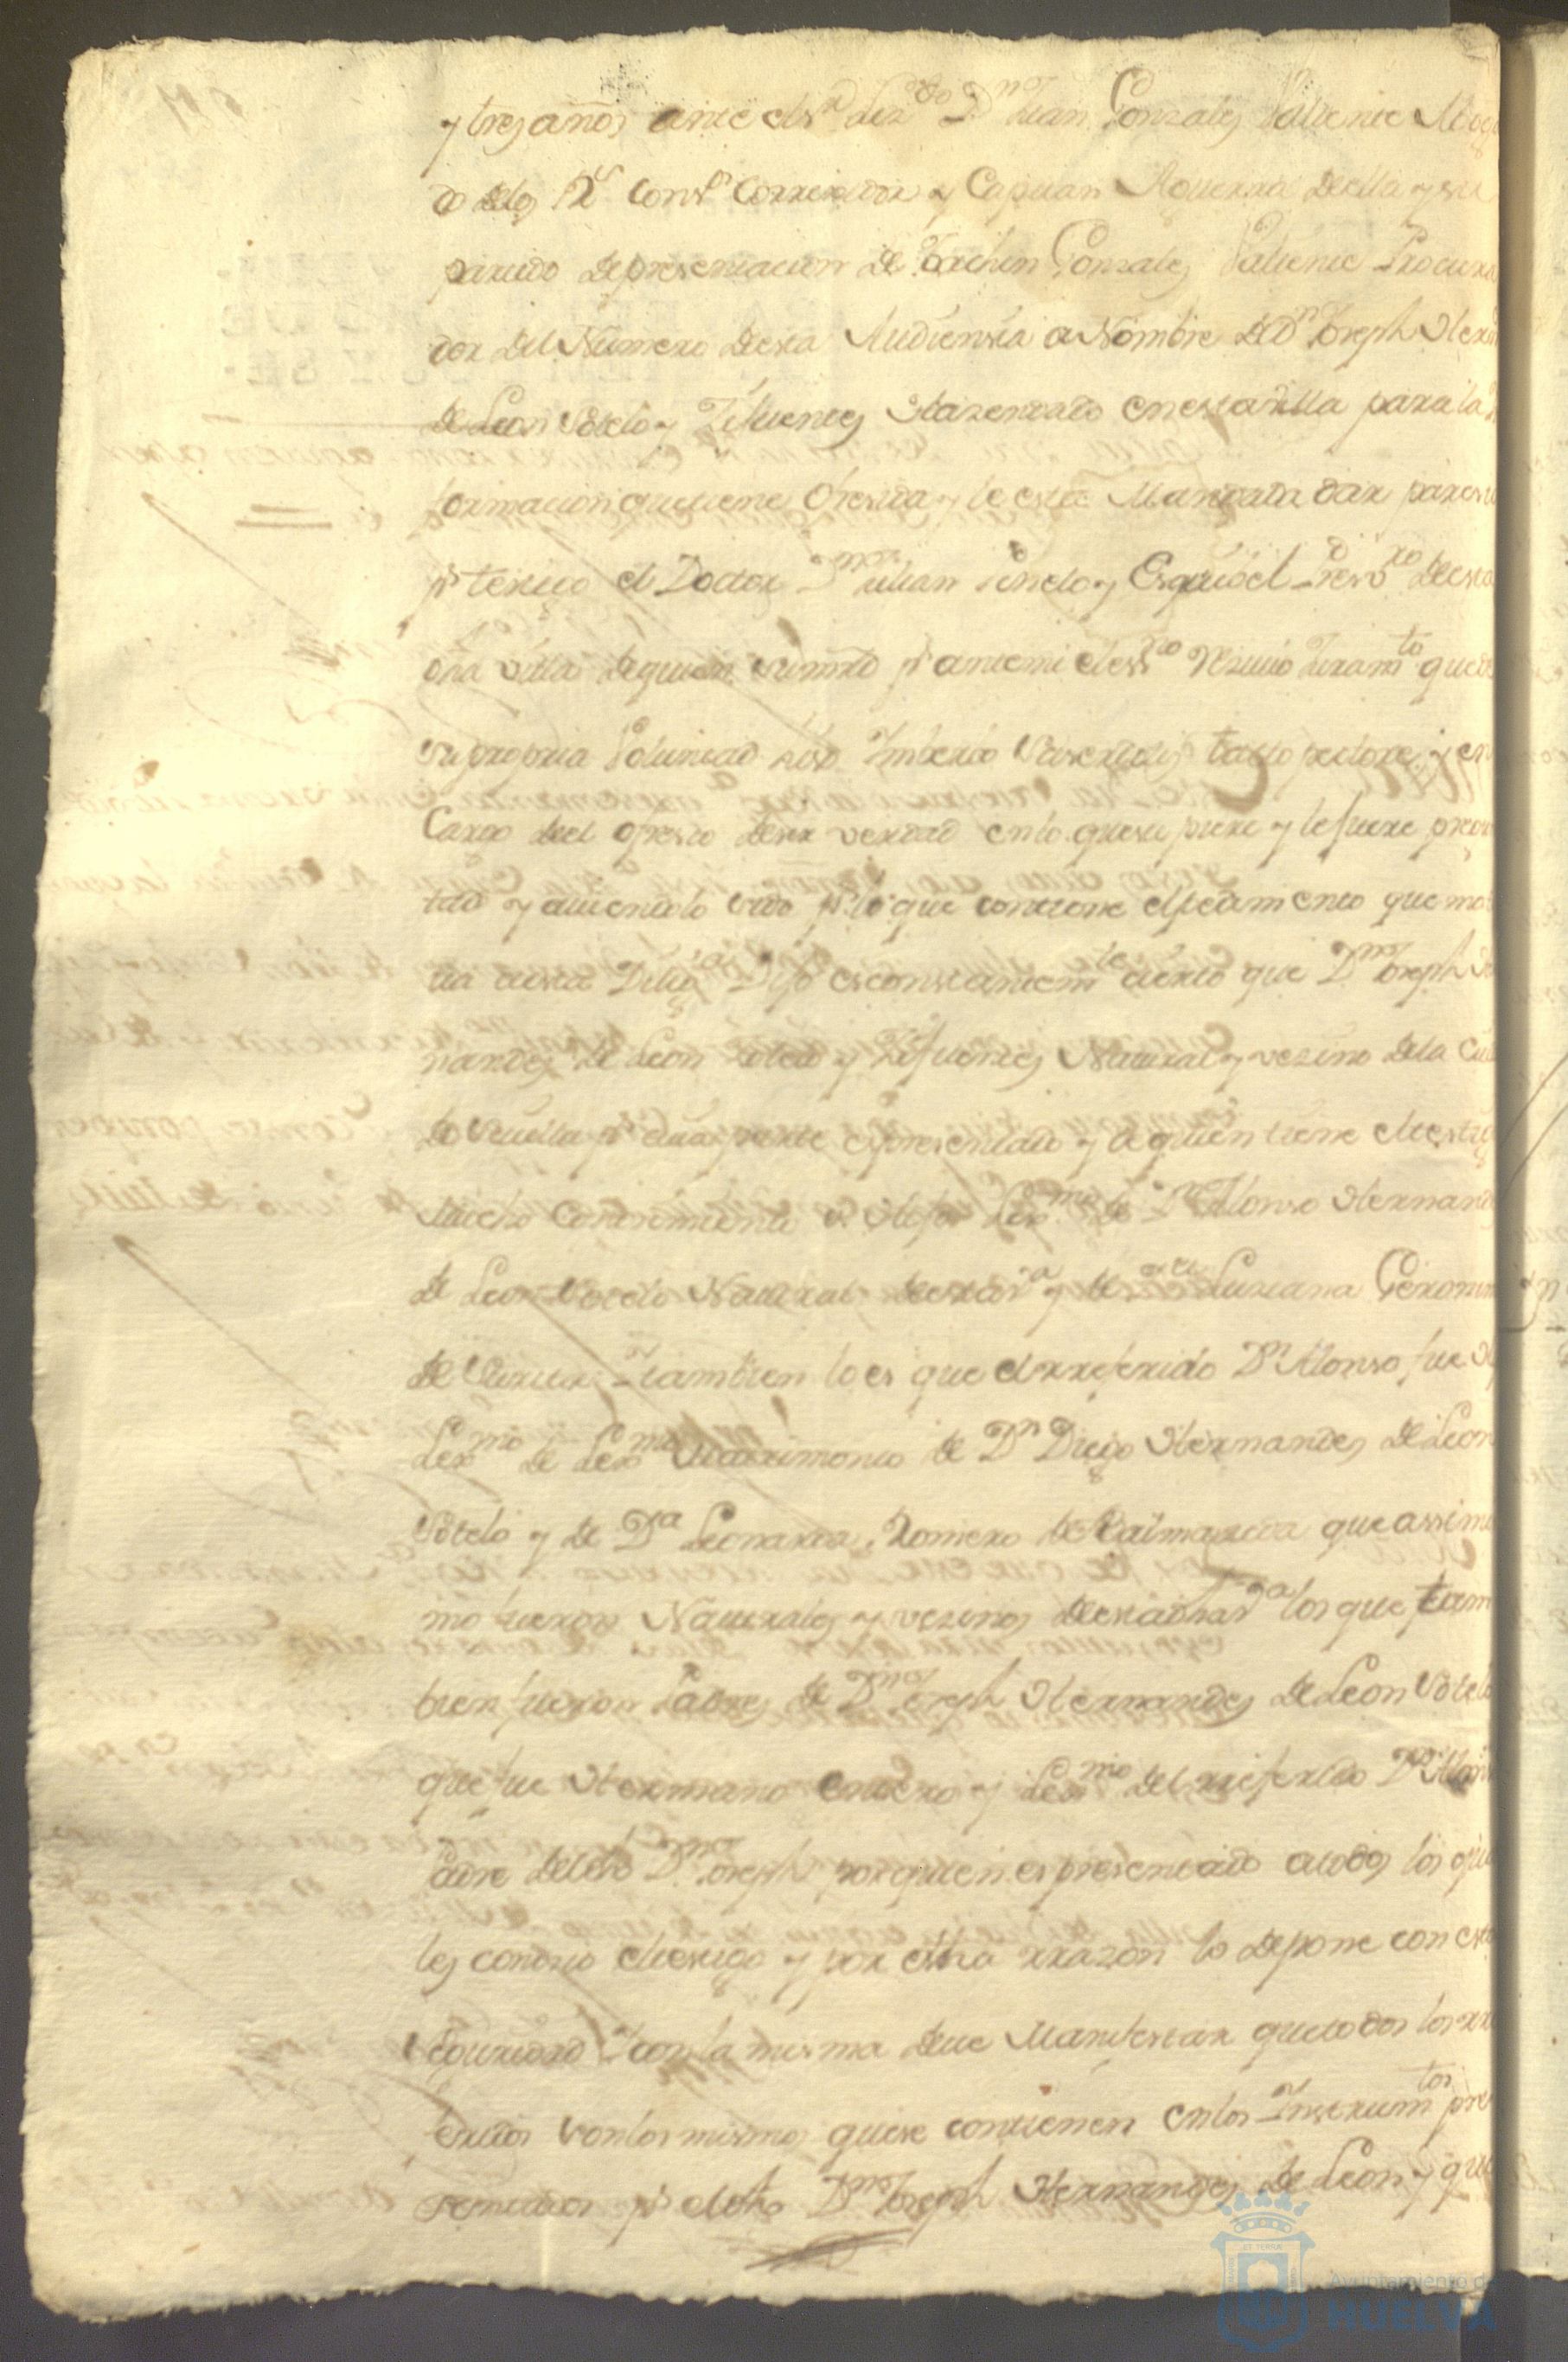 y tres años ante el sr Lizdo Dn Juan Gonzales Valiente Abog
do de los Rs Consos Correxidor y Capitan Aguerra de ella y su
partido de presentacion de Gonzales Valiente Procura
dor del Numero de esta Audiensia a Nombre de Dn Joseph Hern
de Leon Sotelo y Zifuentes Hazendado en esta villa para la
formacion que tiene ofresida y le esta Mandada dar paresio
pr testigo el Doctor Dn Julian Pinelo y Esquibel Presvro de esta
dha villa de quien su mrd pr ante mi el essno Resivio Juramto que de
su propria Voluntad hiso In Verbo Saserdotis tacto pectore y en
Cargo del ofresio desir verdad en lo que supiere y le fuere pregun
tado y aviendolo sido pr lo que contiene el pedimento que mo
tiba esta Diliga Dijo es constantemte cierto que Dn Joseph Her
nandes de Leon Sotelo y Zifuentes Natural y vezino de la Ciu
de Sevilla pr cuia parte es presentado y de quien tiene el testigo
Mucho Conosimiento es Hijo Lexmo de Dn Alonso Hernand
de Leon Sotelo Natural de esta va y de Da Luziana Geronim
de tambien lo es que el rreferido Dn Alonso fue H
Lexmo de Lexmo Matrimonio de Dn Diego Hernandes de Leon
Sotelo y de Da Leonarda Romero de que assimi
mo fueron Naturales y vezinos de esta dha va los que tam
bien fueron Padres de Dn Joseph Hernandes de Leon Sotelo
que fue Hermano entero y Lexmo del rreferido Dn Alon
Padre del dho Dn Joseph por quien es presentado a todos los qua
les conosio el testigo y por esta rrazon lo depone con esta
seguridad Y con la misma deve Manifestar que todos los rre
feridos son los mismos que se contienen en los Instrumtos pre
sentados pr el dho Dn Joseph Hernandes de Leon y que
Ayuntamiento de
HUELVA